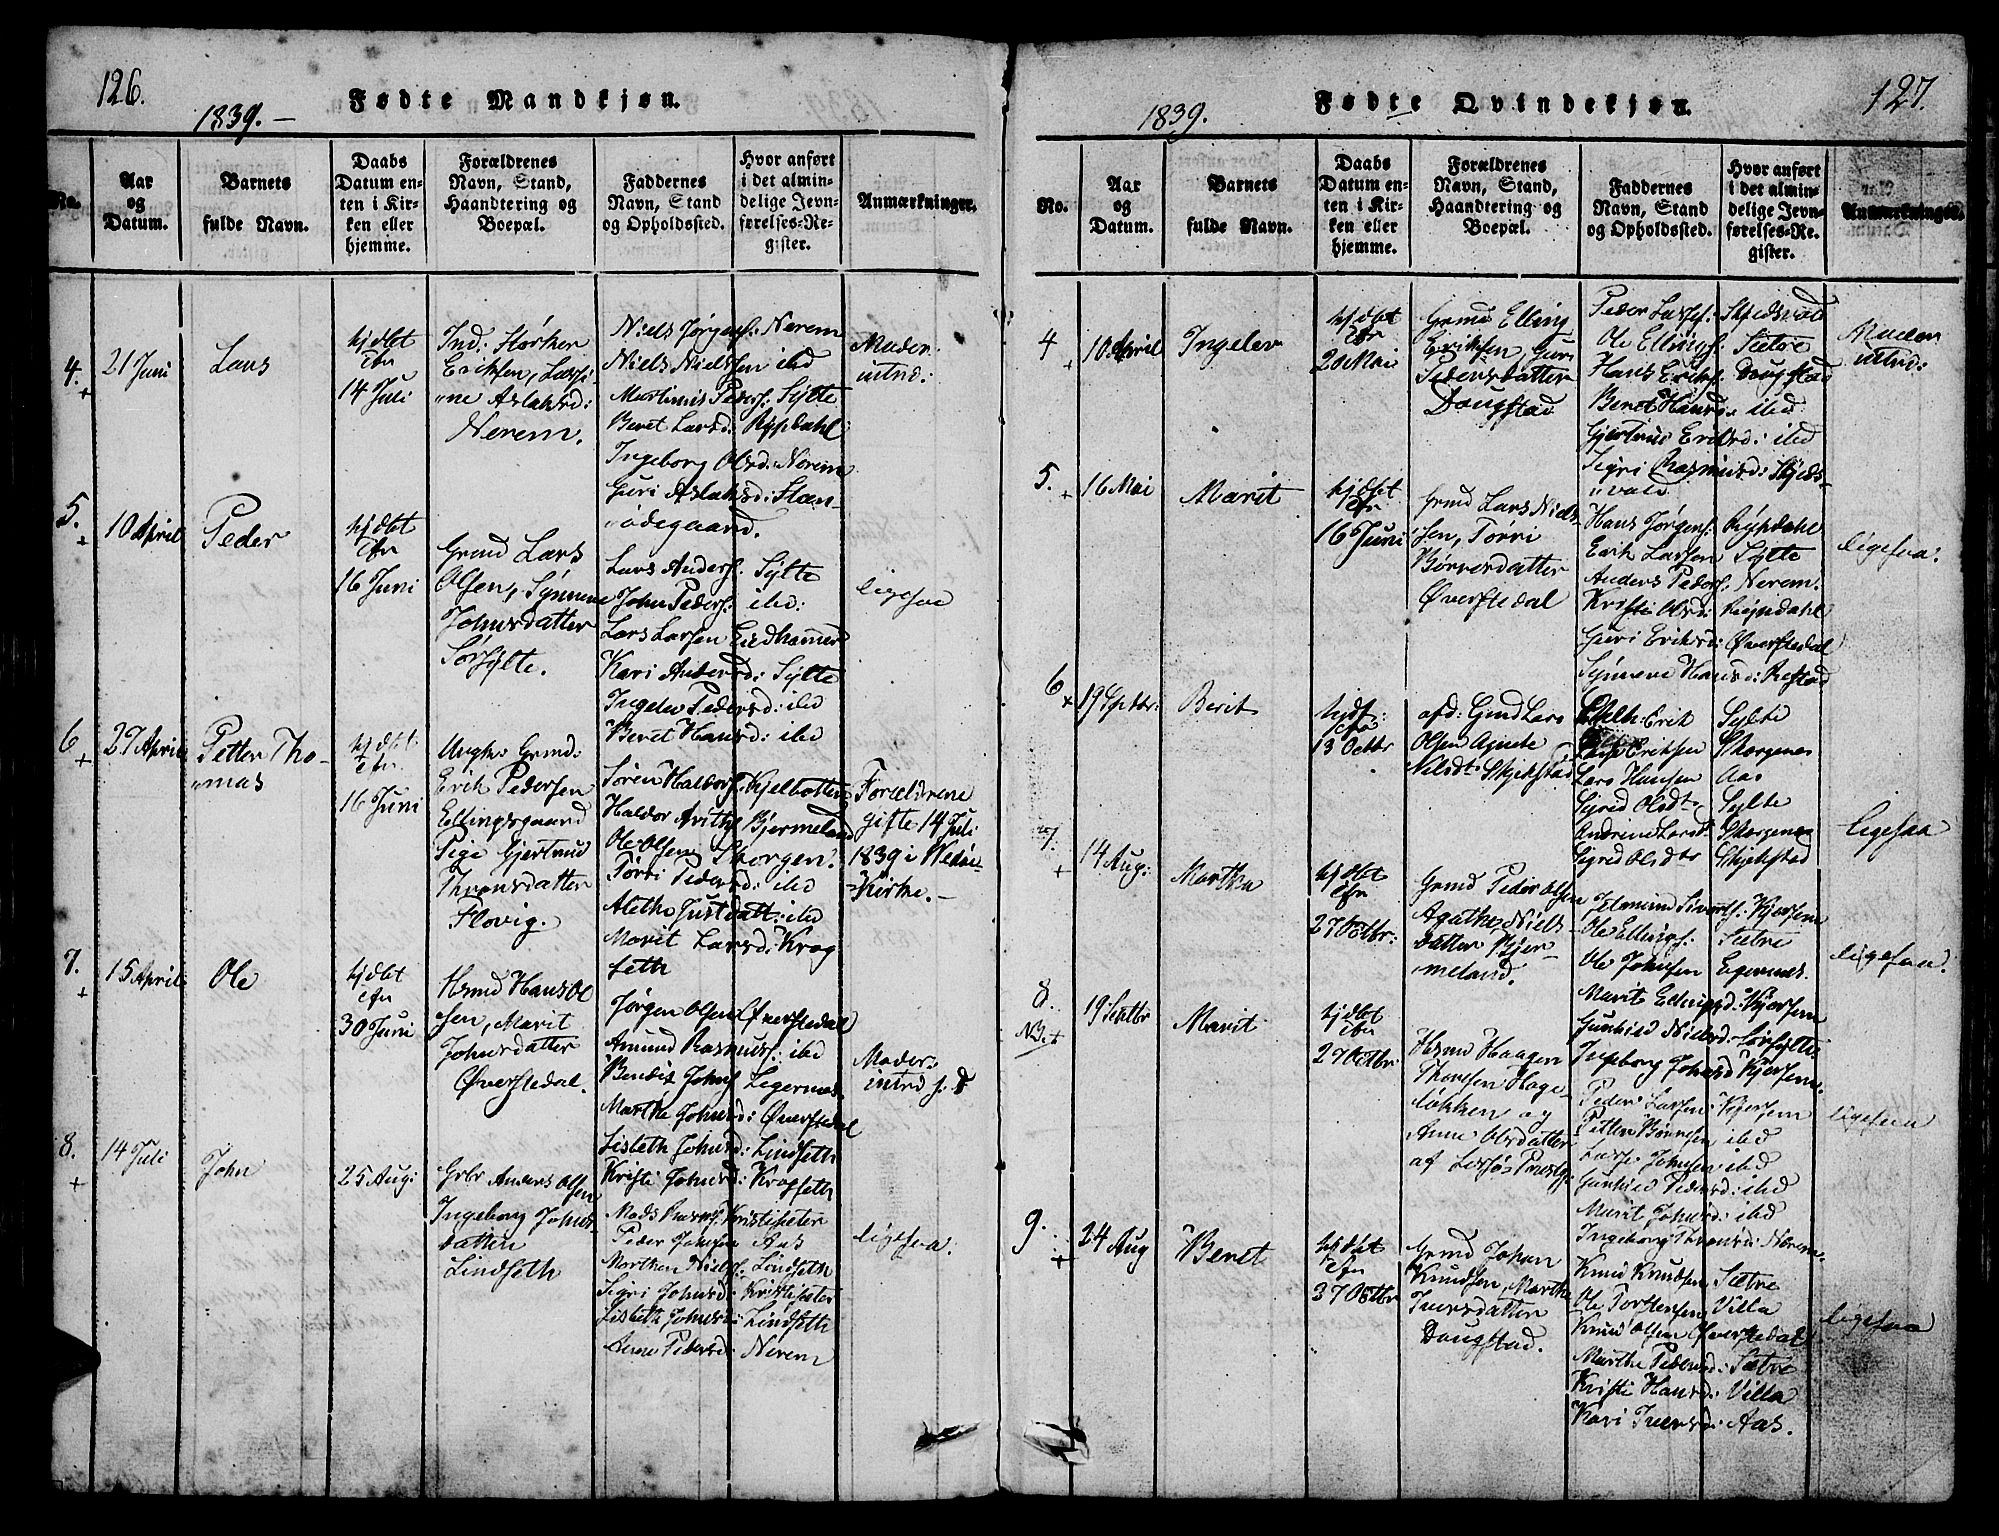 126.
1839. –
Fødte Mandkjøn.
No.
Aar og Datum.
Barnets fulde Navn.
Daabs Datum enten i Kirken eller hjemme.
Forældrenes Navn, Stand, Haandtering og Boepæl.
Faddernes Navn, Stand og Opholdssted.
Hvor anført i det almindelige Jevnførelses-Register.
Anmærkninger.
4.
+
21 Juni
Lars
hjdbt
14 Juli
Ind: Størker
Eriksen, Lassi-
"ne Aslaksd:
Nerem.
Niels Jørgens: Nerem
Niels Nielsen ibd
Martinus Peders: Sylte
Beret Larsd: Rypdahl
Ingeborg Olsd: Nerem
Guri Aslaksd: Stan-
"ødegaard.
Moder
intrd:
5.
+
10 April
Peder
hjdbt
16 Juni
Grmd Lars
Olsen, Synneve
Johnsdatter
Sørsylte.
Lars Anders: Sylte
John Peders: ibd:
Lars Larsen Eidhamer
Kari Andersd: Sylte
Ingelev Pedersd: ibd
Beret Hansd: ibd
ligesaa
6
+
27 April
Petter Tho-
"mas
hjdbt
16 Juni
Ungk. Grmd:
Erik Pedersen
Ellingsgaard
Pige Gjertrud
Thronsdatter
Flovig.
Søren Haldors: Kjelbotten
Haldor Bjermeland
Ole Olsen Skorgen.
Tørri Pedersd: ibd
Alethe Justdatt: ibd
Marit Larsd: Krog
seth
Forældrene
gifte 14 Juli
1839 i Wedøe
Kirke. –
7.
+
15 April
Ole
hjdbt
30 Juni
Hsmd Hans Ol
sen, Marit
Johnsdatter
Øverstedal.
Jørgen Olsen Øverstedal
Amund Rasmus: ibd
Bendis Johns
Marthe Johnsd: Øverstedal
Lisbeth Johnsd: Lindseth
Kristi Johnsd: Krogseth
Moder
intrd s. d
8.
+
14 Juli
John
25 Aug:
Grbr Anders Olsen
Ingeborg Johns-
datter
Lindseth
Mads Rasms: Kristisæter
Peder Johnsen Aas
Morthen Niels: Lindseth
Sigri Johnsd: Kristisæter
Lisbeth Johnsd: Lindseth
Anne Pedersd: Nerem
ligesaa.
127.
1839.
Fødte Qvindekjøn.
No.
Aar og Datum.
Barnets fulde Navn.
Daabs Datum enten i Kirken eller hjemme.
Forældrenes Navn, Stand, Haandtering og Boepæl.
Faddernes Navn, Stand og Opholdssted.
Hvor anført i det almindelige Jevnførelses-Register.
Anmærkninger.
4
+
10 April
Ingelev
hjdbt
20 Mai
Grmd Elling
Eriksen, Guri
Pedersdatter
Dougstad
Peder Lasses: Skjedsvold
Ole Ellings: Sætre
Hans Eriks: Dougstad
Beret Hansd: ibd
Gjertrud Eriksd: ibd
Sigri Rasmusd: Skjeds-
"vold
Moder
intrd:
5.
+
16 Mai
Marit
hjdbt
16 Juni
Grmd Lars Niel-
sen, Tørri
Børresdatter
Øverstedal
Hans Jørgens: Rypdahl
Erik Larsen Sylte
Anders Peders: Nerem.
Kristi Olsd: Rypdahl
Guri Eriksd: Øverstedal
Synneve Hansd: Restad
ligesaa.
6
+
19 Septbr:
Berit
hjdt:
13 Octbr
afd: Gmd Lars
Olsen Agnete
Nilsdt. Skjelstad
Erik Sylte
Eriksen Skorgenes
Lars Hansen Aas
Sigrid Olsdt. Sylte
Andrine Larsd: Skorgenes
Sigrid Olsdtr Skjelstad
Ligesaa
7.
+
14 Aug:
Martha
hjdbt
27 Octbr:
Grmd Peder Olsen
Agathe, Niels-
datter Bjer-
"meland.
Elmund Siverts: Kjersem
Ole Ellings: Sætre
Ole Johnsen Egernæs.
Marit Ellingsd: Kjersem
Gunhild Nielsd: Sørsylte
Ingeborg Johnsd: Kjersem
ligesaa.
8.
NB. +
19 Septbr
Marit
hjdbt
27 Octbr
Hsmd Haagen
Thoresen Hage-
løkken og
Anne Olsdatter
af Lessøe Præstgj:
Peder Larsen Kjersem
Petter Børresen ibd
Lasse Johnsen ibd
Gunhild Pedersd: ibd
Marit Johnsd: ibd
Ingeborg Thronsd: Nerem
ligesaa
9.
+
24 Aug
Beret
hjdbt
37 Octbr
Grmd Johan
Knudsen, Marthe
Iversdatter
Dougstad.
Knud Knudsen Sætre
Ole Torstensen Villa
Knud Olsen Øverstedal
Marthe Pedersd: Sætre
Kristi Hansd: Villa
Kari Iversd: Aas.
ligesaa